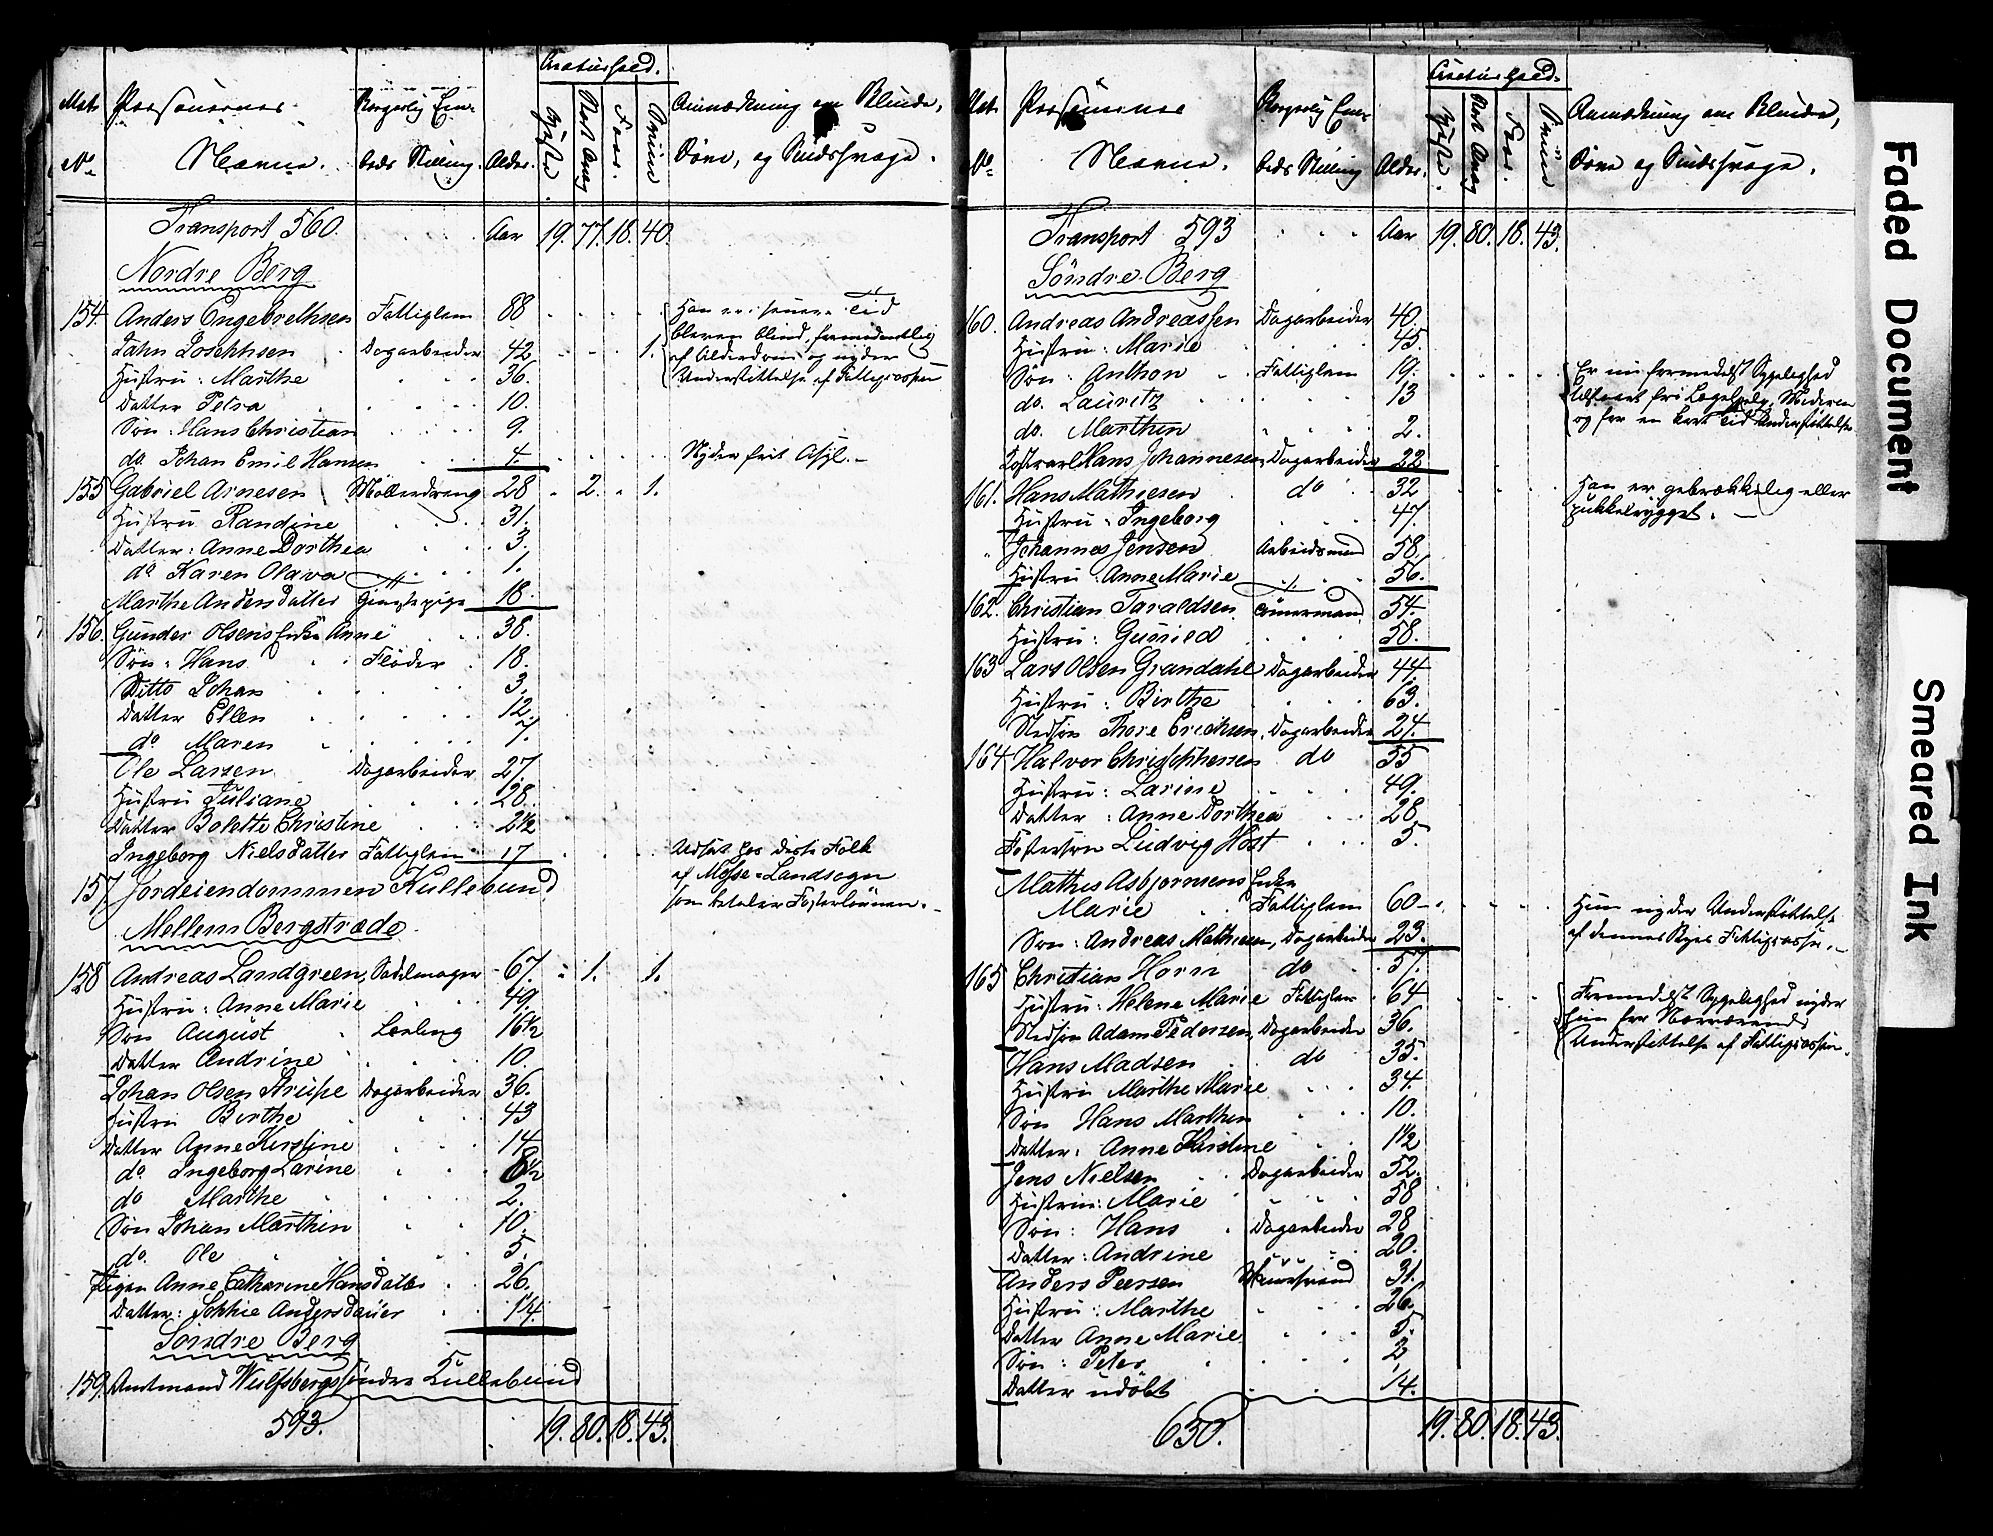 Mat.
No
Personernes
Navne.
Borgerlig Em-
beds Stilling.
Alder.
Creaturhold.
Heste.
Stort Qvæg
Faar.
Sviin
Anmærkning om Blinde,
Døve, og Sindssvage.
Transport 560. Aar 19. 77. 18. 40.
Nordre Berg
154. Anders Engebrethsen Fattiglem 88 Han er i senere Tid
bleven blind, formedentlig
af Alderdom og nyder
Understøttelse af Fattigcassen
Jahn Josephsen Dagarbeider 42 1.
Hustru: Marthe 36.
Datter Petra 10.
Søn: Hans Christian 9.
do. Johan Emil Hansen 4. Nyder frit Asyl.
155 Gabriel Arnesen Møllerdreng 28 2. 1.
Hustru Randine 31.
Datter: Anne Dorthea 3.
do Karen Olava 1.
Marthe Andersdatter 18
156. Gunder Olsens Enke Anne 38.
Søn: Hans Fløder 18.
Ditto Johan 3.
Datter Ellen 12.
do Maren 7.
Ole Larsen Dagarbeider 27.
Hustru Juliane 28.
Datter Bolette Christine 2½
Ingeborg Nielsdatter Fattiglem 17 Udsat hos disse Folk
af Mosse-Landsogn
som betaler Fosterlønnen.
157. Jordeiendommen Kullebund
Mellem Bergstræde
158 Andreas Landgreen, Sadelmager 67. 1. 1.
Hustru: Anne Marie 49.
Søn August Lærling 16½
Datter Andrine 10.
Johan Olsen Strupe Dagarbeider 36.
Hustru Birthe 43
Datter Anne Kirstine 14
do Ingeborg Larine 8½
do Marthe 2.
Søn Johan Marthin 10.
do. Ole 5.
Pigen Anne Catharine Hansdatter 26.
Datter: Sophie Andersdatter 1¼.
Söndre Berg
159. Amtmand Wulfsbergs söndre Kullebund
593. 19. 80. 18. 43.
Mat.
No
Personernes
Navne.
Borgerlig Em-
beds Stilling
Alder.
Creaturhold.
Heste.
Stort Qvæg
Faar.
Sviin
Anmærkning om Blinde,
Døve og Sindssvage.
Transport 593 Aar 19. 80. 18. 43.
Söndre Berg
160. Andreas Andreassen Dagarbeider 40.
Hustru: Marie 45.
Søn: Anthon Fattiglem 19. Er nu formedelst Sygelighed
fri Lægehjelp, Medicin
og for en kort Tid Understøttelse
do. Lauritz 13
do. Marthin 2.
Kostkarl Hans Johannesen, Dagarbeider 22
161. Hans Mathiesen do 32 Han er gebrækkelig eller
pukkelrygget.
Hustru: Ingeborg 47.
Johannes Jensen Arbeidsmand 58.
Hustru: Anne Marie 56.
162. Christian Taraldsen Tømermand 54.
Hustru: Gunild 58.
163 Lars Olsen Grandahl Dagarbeider 44
Hustru: Birthe 63.
Stedsøn Thore Erichsen, Dagarbeider 24.
164 Halvor Christophersen do 55
Hustru: Larine 49.
Datter: Anne Dorthea 28.
Fostersøn Ludvig Höst 5.
Mathis Asbjornsens Enke
Marie Fattiglem 60 Hun nyder Understøttelse
af dennes Byes Fattigcasse.
Søn: Andreas Mathiesen, Dagarbeider 23.
165 Christian Horn do 57.
Hustru: Helene Marie Fattiglem 64 Formedelst Sygelighed nyder
hun for Nærværende
Understøttelse af Fattigcassen.
Stedsøn Adam Pedersen, Dagarbeider 36.
Hans Madsen do 35.
Hustru Marthe Marie 34.
Søn Hans Marthin 10.
Datter: Anne Kirstine 1½
Jens Nielsen Dagarbeider 52.
Hustru: Marie 58
Søn: Hans Dagarbeider 28
Datter: Andrine 20.
Anders Peersen 31.
Hustru: Marthe 26.
Datter Anne Marie 5.
Søn: Peter 2
Datter udöbt ¼.
650. 19. 80. 18. 43.
Faded Document
Smeared Ink